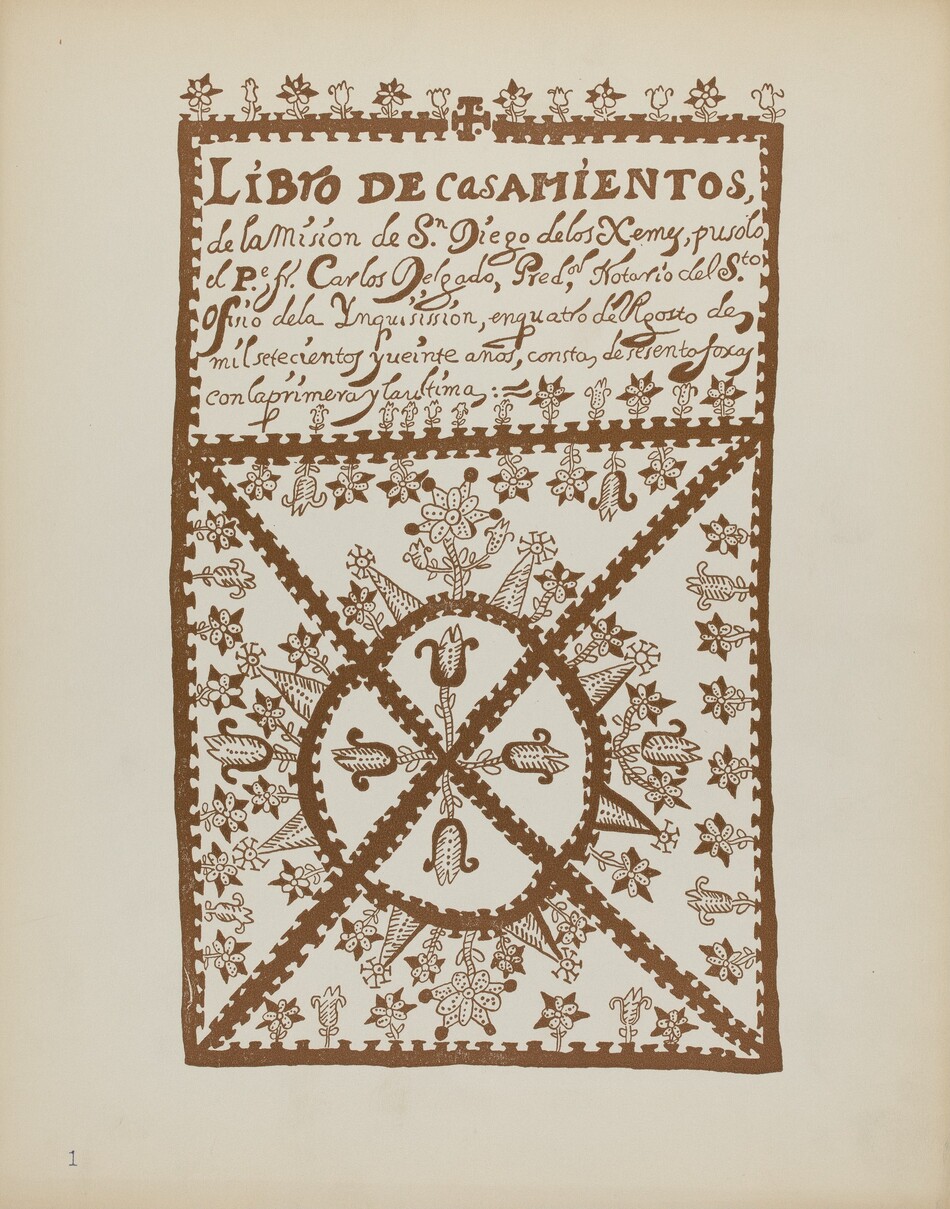 LiBro DE CasAMiENTOS,
de la Mision de S.n Diego delos Xemes, pusolo
el P.e fr. Carlos Delgado, Pred.or Notario del S.to
Ofisio dela Ynquisission, enquatro de Agosto de
mil setecientos y ueinte años, consta, de sesenta foxas
con la primera y la ultima,
1